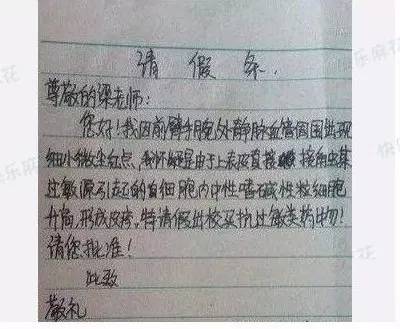 请 假 条.
尊敬的梁老师:
您好!我因前臂手腕处静脉血管周围出现
细小微尘红点,我怀疑是由于上表皮直接接触
过敏源引起的白细胞内中性嗜碱性粒细胞
升高,形成皮疹,特请假出校买抗过敏类药物!
请您批准!
此致
敬礼